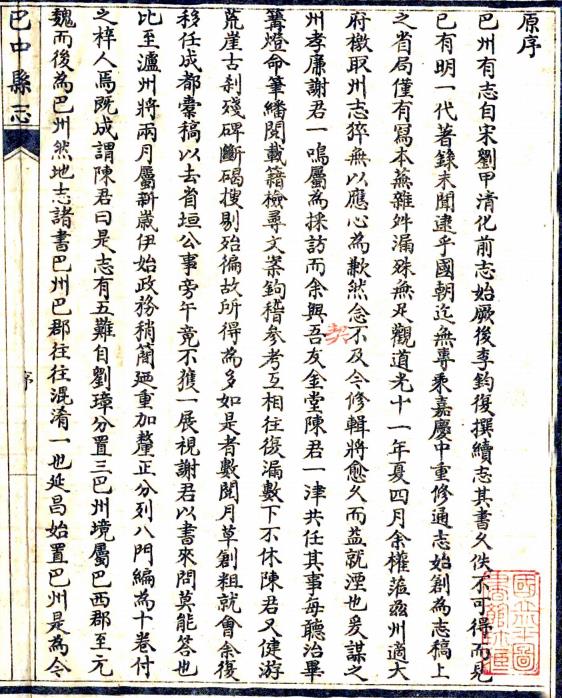 原序
巴州有志自宋劉甲清化前志始厥後李鈞復撰續志其書久佚不可得而見
已有明一代著錄未聞逮乎國朝迄無專乘嘉慶中重修通志始創為志稿上
之省局僅有寫本蕪雜舛漏殊無足觀道光十一年夏四月余權蒞茲州適大
府檄取州志猝無以應心為歉然念不及今修輯將愈久而益就湮也爰謀之
州孝廉謝君一鳴屬為採訪而余與吾友金堂陳君一津共任其事每聽治畢
篝燈命筆繙閱載籍檢尋文案鉤稽參考互相往復漏數下不休陳君又健游
荒崖古刹殘碑斷碣搜剔殆徧故所得為多如是者數閱月草創粗就會余復
移任成都橐稿以去省垣公事旁午竟不獲一展視謝君以書來問莫能答也
比至瀘州將兩月屬新歲伊始政務稍簡廼重加釐正分列八門編為十卷付
之梓人焉既成謂陳君曰是志有五難自劉璋分置三巴州境屬巴西郡至元
魏而後為巴州然地志諸書巴州巴郡往往混淆一也延昌始置巴州是為今
巴中縣志
序
契